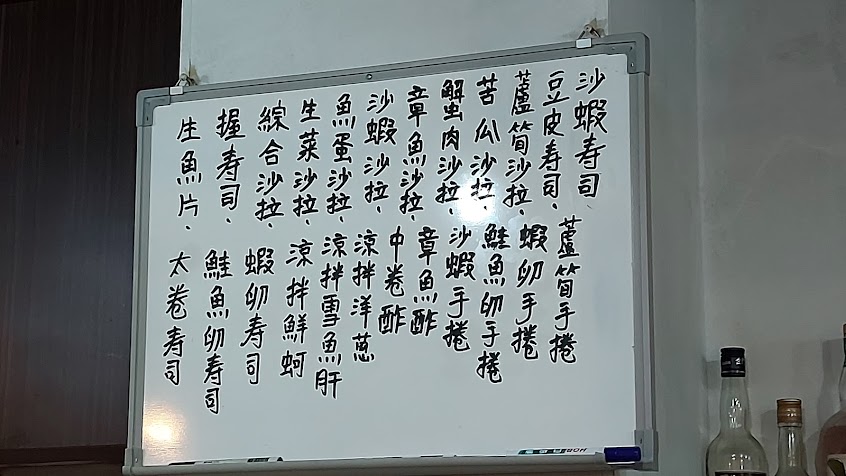 沙蝦寿司、
豆皮寿司、
蘆筍沙拉、
苦瓜沙拉、
蟹肉沙拉
章魚沙拉、
沙蝦沙拉、
魚蛋沙拉、
生菜沙拉、
綜合沙拉、
握寿司、
生魚片、
蘆筍手捲
蝦卵手捲
鮭魚卵手捲
沙蝦手捲
章魚酢
中卷酢
涼拌洋蔥
涼拌雪魚肝
涼拌鮮蚵
蝦卵寿司
鮭魚卵寿司
太卷寿司